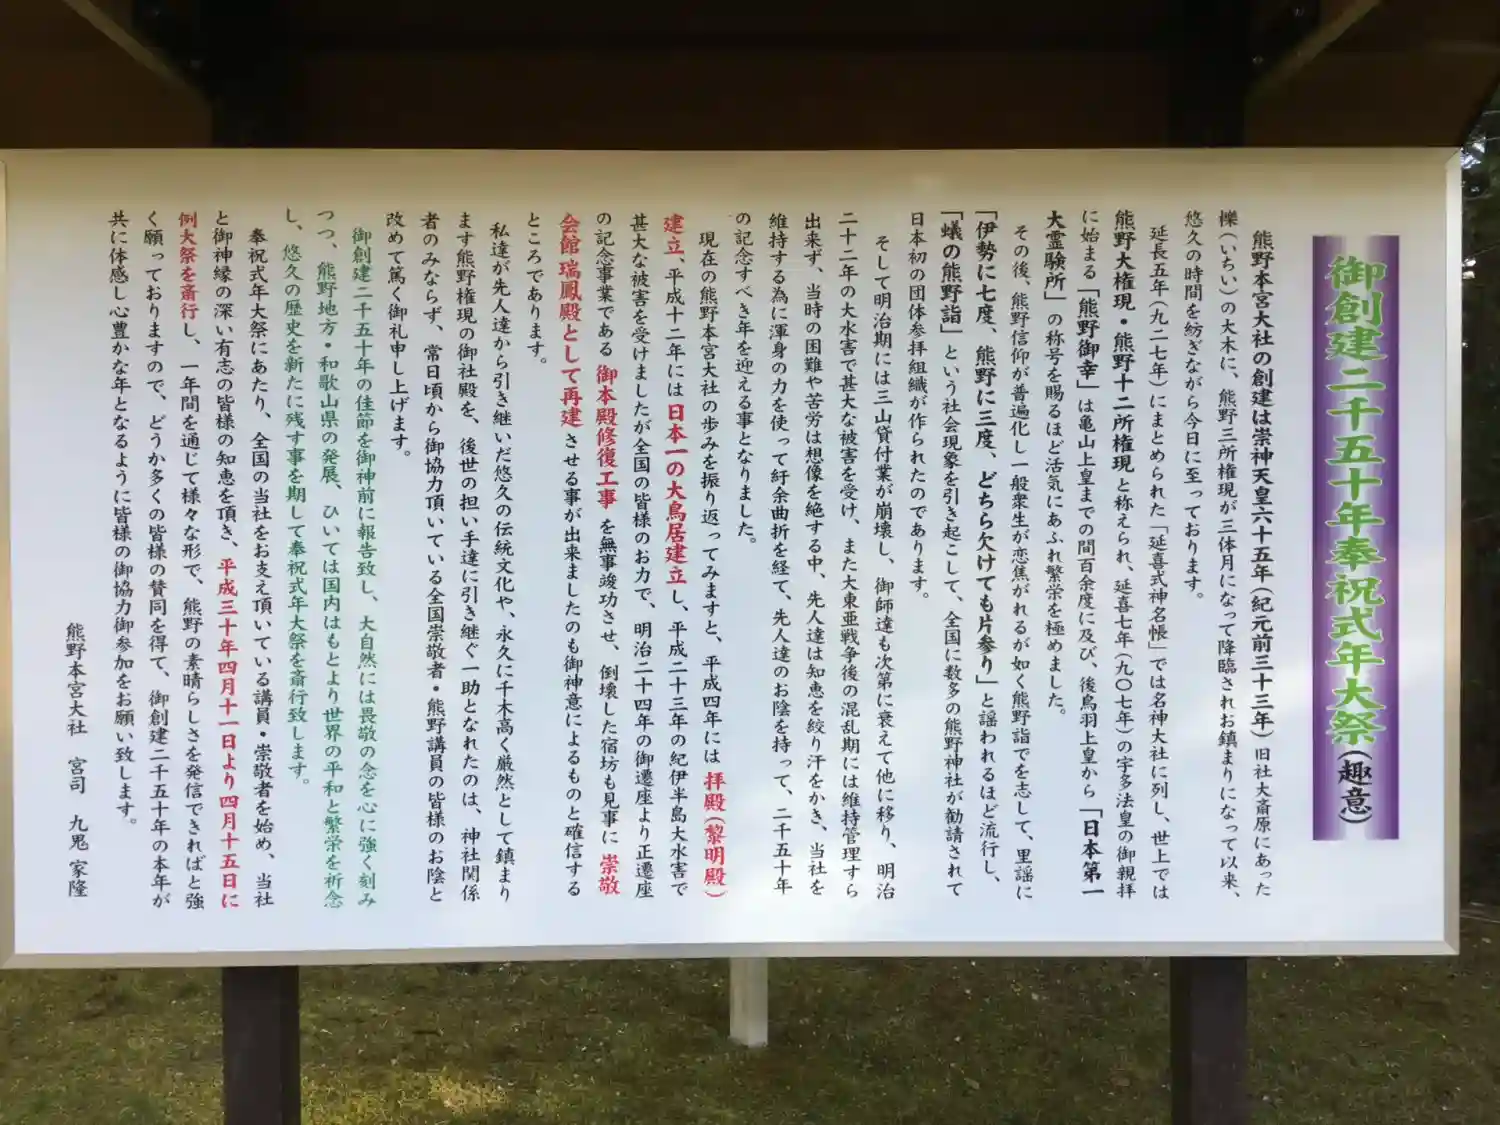 御創建二千五十年奉祝式年大祭（趣意）
熊野本宮大社の創建は崇神天皇六十五年（紀元前三十三年）旧社大斎原にあった
櫟（いちい）の大木に、熊野三所権現が三体月になって降臨されお鎮まりになって以来、
悠久の時間を紡ぎながら今日に至っております。
延長五年（九二七年）にまとめられた「延喜式神名帳」では名神大社に列し、世上では
熊野大権現・熊野十二所権現と称えられ、延喜七年（九〇七年）の宇多法皇の御親拝
に始まる「熊野御幸」は亀山上皇までの間百余度に及び、後鳥羽上皇から「日本第一
大霊験所」の称号を賜るほど活気にあふれ繁栄を極めました。
その後、熊野信仰が普遍化し一般衆生が恋焦がれるが如く熊野詣でを志して、里謡に
「伊勢に七度、熊野に三度、どちら欠けても片参り」と謡われるほど流行し、
「蟻の熊野詣」という社会現象を引き起こして、全国に数多の熊野神社が勧請されて
日本初の団体参拝組織が作られたのであります。
そして明治期には三山貸付業が崩壊し、御師達も次第に衰えて他に移り、明治
二十二年の大水害で甚大な被害を受け、また大東亜戦争後の混乱期には維持管理すら
出来ず、当時の困難や苦労は想像を絶する中、先人達は知恵を絞り汗をかき、当社を
維持する為に渾身の力を使って紆余曲折を経て、先人達のお陰を持って、二千五十年
の記念すべき年を迎える事となりました。
現在の熊野本宮大社の歩みを振り返ってみますと、平成四年には 拝殿（黎明殿）
建立、平成十二年には日本一の大鳥居建立し、平成二十三年の紀伊半島大水害で
甚大な被害を受けましたが全国の皆様のお力で、明治二十四年の御遷座より正遷座
の記念事業である 御本殿修復工事 を無事竣功させ、倒壊した宿坊も見事に 崇敬
会館 瑞鳳殿として再建させる事が出来ましたのも御神意によるものと確信する
ところであります。
私達が先人達から引き継いだ悠久の伝統文化や、永久に千木高く厳然として鎮まり
ます熊野権現の御社殿を、後世の担い手達に引き継ぐ一助となれたのは、神社関係
者のみならず、常日頃から御協力頂いている全国崇敬者・熊野講員の皆様のお陰と
改めて篤く御礼申し上げます。
御創建二千五十年の佳節を御神前に報告致し、大自然には畏敬の念を心に強く刻み
つつ、熊野地方・和歌山県の発展、ひいては国内はもとより世界の平和と繁栄を祈念
し、悠久の歴史を新たに残す事を期して奉祝式年大祭を斎行致します。
奉祝式年大祭にあたり、全国の当社をお支え頂いている講員・崇敬者を始め、当社
と御神縁の深い有志の皆様の知恵を頂き、平成三十年四月十一日より四月十五日に
例大祭を斎行し、一年間を通じて様々な形で、熊野の素晴らしさを発信できればと強
く願っておりますので、どうか多くの皆様の賛同を得て、御創建二千五十年の本年が
共に体感し心豊かな年となるように皆様の御協力御参加をお願い致します。
熊野本宮大社 宮司 九鬼 家隆